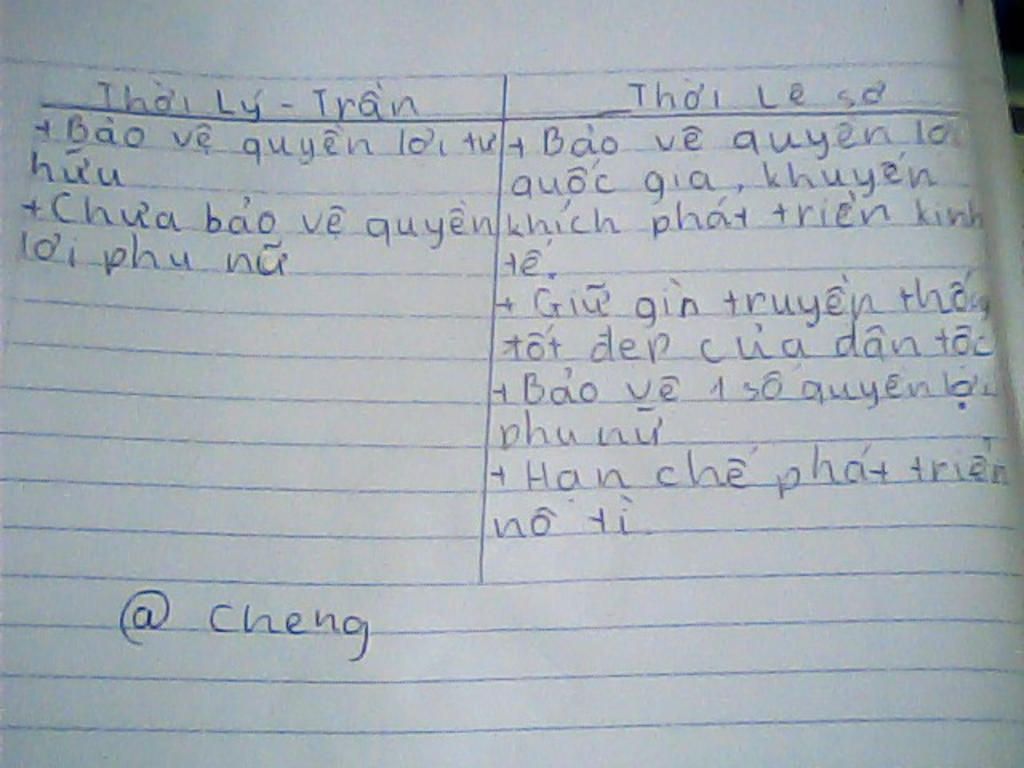 Thời Lý - Trần
+ Bảo vệ quyền lợi tư
hữu
+ Chưa bảo vệ quyền
lợi phụ nữ
Thời Lê sơ
+ Bảo vệ quyền lợi
quốc gia, khuyến
khích phát triển kinh
tế.
+ Giữ gìn truyền thống
tốt đẹp của dân tộc
+ Bảo vệ 1 số quyền lợi
phụ nữ
+ Hạn chế phát triển
nô tì
@ Cheng